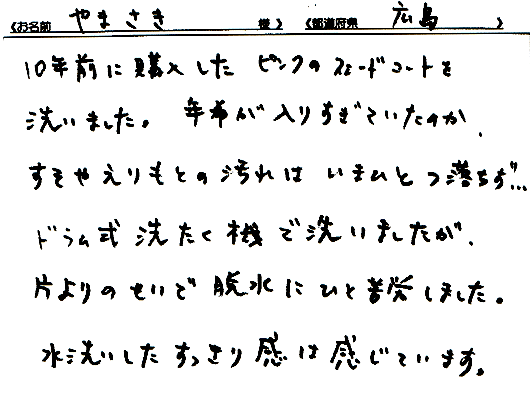 《お名前 やまさき 様》 《都道府県 広島 》
10年前に購入した ピンクのスェードコートを
洗いました。 年季が入りすぎていたのか、
すそやえりもとの汚れは いまひとつ落ちず…
ドラム式洗たく機で洗いましたが、
片よりのせいで 脱水にひと苦労しました。
水洗いしたすっきり感は感じています。